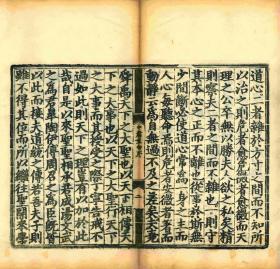 道心二者雜於方寸之間而不知所
以治之則危者愈危微者愈微而天
理之公卒無以勝夫人欲之私矣精
則察夫二者之間而不雜也一則守
其本心之正而不離也從事於斯無
少間斷必使道心常為一身之主而
人心每聽命焉則危者安微者著而
動靜云為自無過不及之差矣夫堯
舜禹天下之大聖也以天下相傳天
下之大事也以天下之大聖行天下
之大事而其授受之際丁寧告戒不
過如此則天下之理豈有以加於此
哉自是以來聖聖相承若成湯文武
之為君皋陶伊傅周召之為臣既皆
以此而接夫道統之傳若吾夫子則
雖不得其位而所以繼往聖開來學